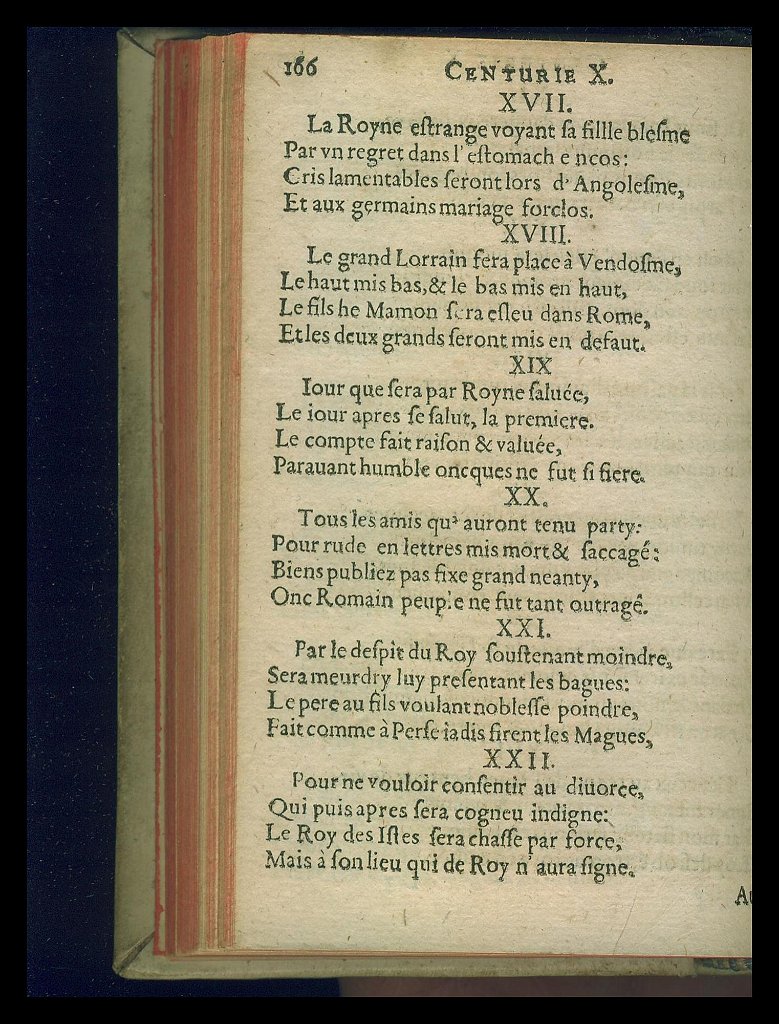 166 CENTURIE X.
XVII.
La Royne eſtrange voyant ſa fillle bleſme
Par vn regret dans l'eſtomach e ncos:
Cris lamentables ſeront lors d'Angoleſme,
Et aux germains mariage forclos.
XVIII.
Le grand Lorrain fera place à Vendoſme,
Le haut mis bas, & le bas mis en haut,
Le fils he Mamon ſera eſleu dans Rome,
Et les deux grands ſeront mis en defaut.
XIX
Iour que ſera par Royne ſaluée,
Le iour apres ſe ſalut, la premiere.
Le compte fait raiſon & valuée,
Parauant humble oncques ne fut ſi fiere.
XX.
Tous les amis qu' auront tenu party:
Pour rude en lettres mis mort & ſaccagé:
Biens publiez pas fixe grand neanty,
Onc Romain peuple ne fut tant outragé.
XXI.
Par le deſpit du Roy ſouſtenant moindre,
Sera meurdry luy preſentant les bagues:
Le pere au fils voulant nobleſſe poindre,
Fait comme à Perſe iadis firent les Magues,
XXII.
Pour ne vouloir conſentir au diuorce,
Qui puis apres ſera cogneu indigne:
Le Roy des Iſles ſera chaſſe par force,
Mais à ſon lieu qui de Roy n'aura ſigne.